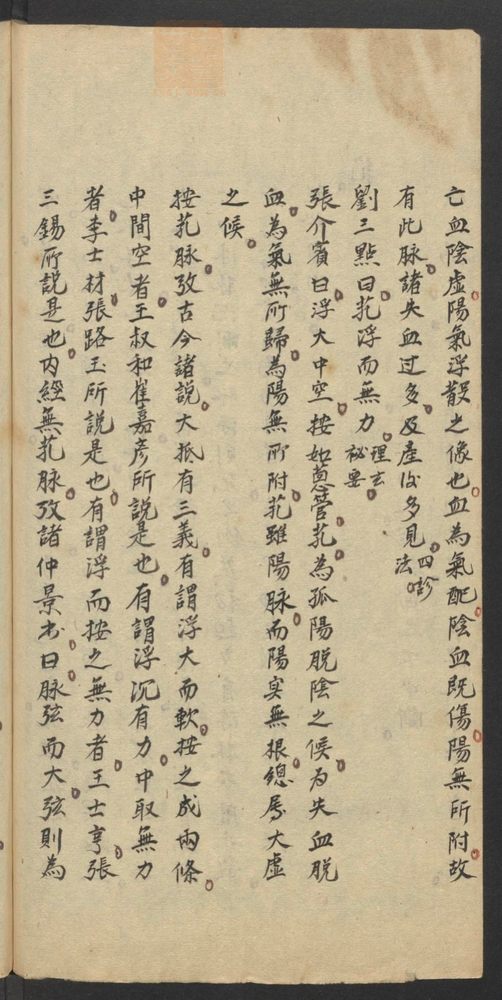 亡血陰虛陽氣浮散之像也血為氣配陰血既傷陽無所附故
有此脉諸失血过多及產後多見四診法
劉三點曰芤浮而無力理玄祕要
張介賓曰浮大中空按如蔥管芤為孤陽脫陰之候为失血脱
血為氣無所歸為陽無所附芤雖陽脉而陽实無根總属大虛
之候
按芤脉攷古今諸説大抵有三義有謂浮大而軟按之成兩條
中間空者王叔和崔嘉彦所説是也有謂浮沉有力中取無力
者李士材張路玉所説是也有謂浮而按之無力者王士亨張
三錫所説是也内經無芤脉攷諸仲景书曰脉弦而大弦則為